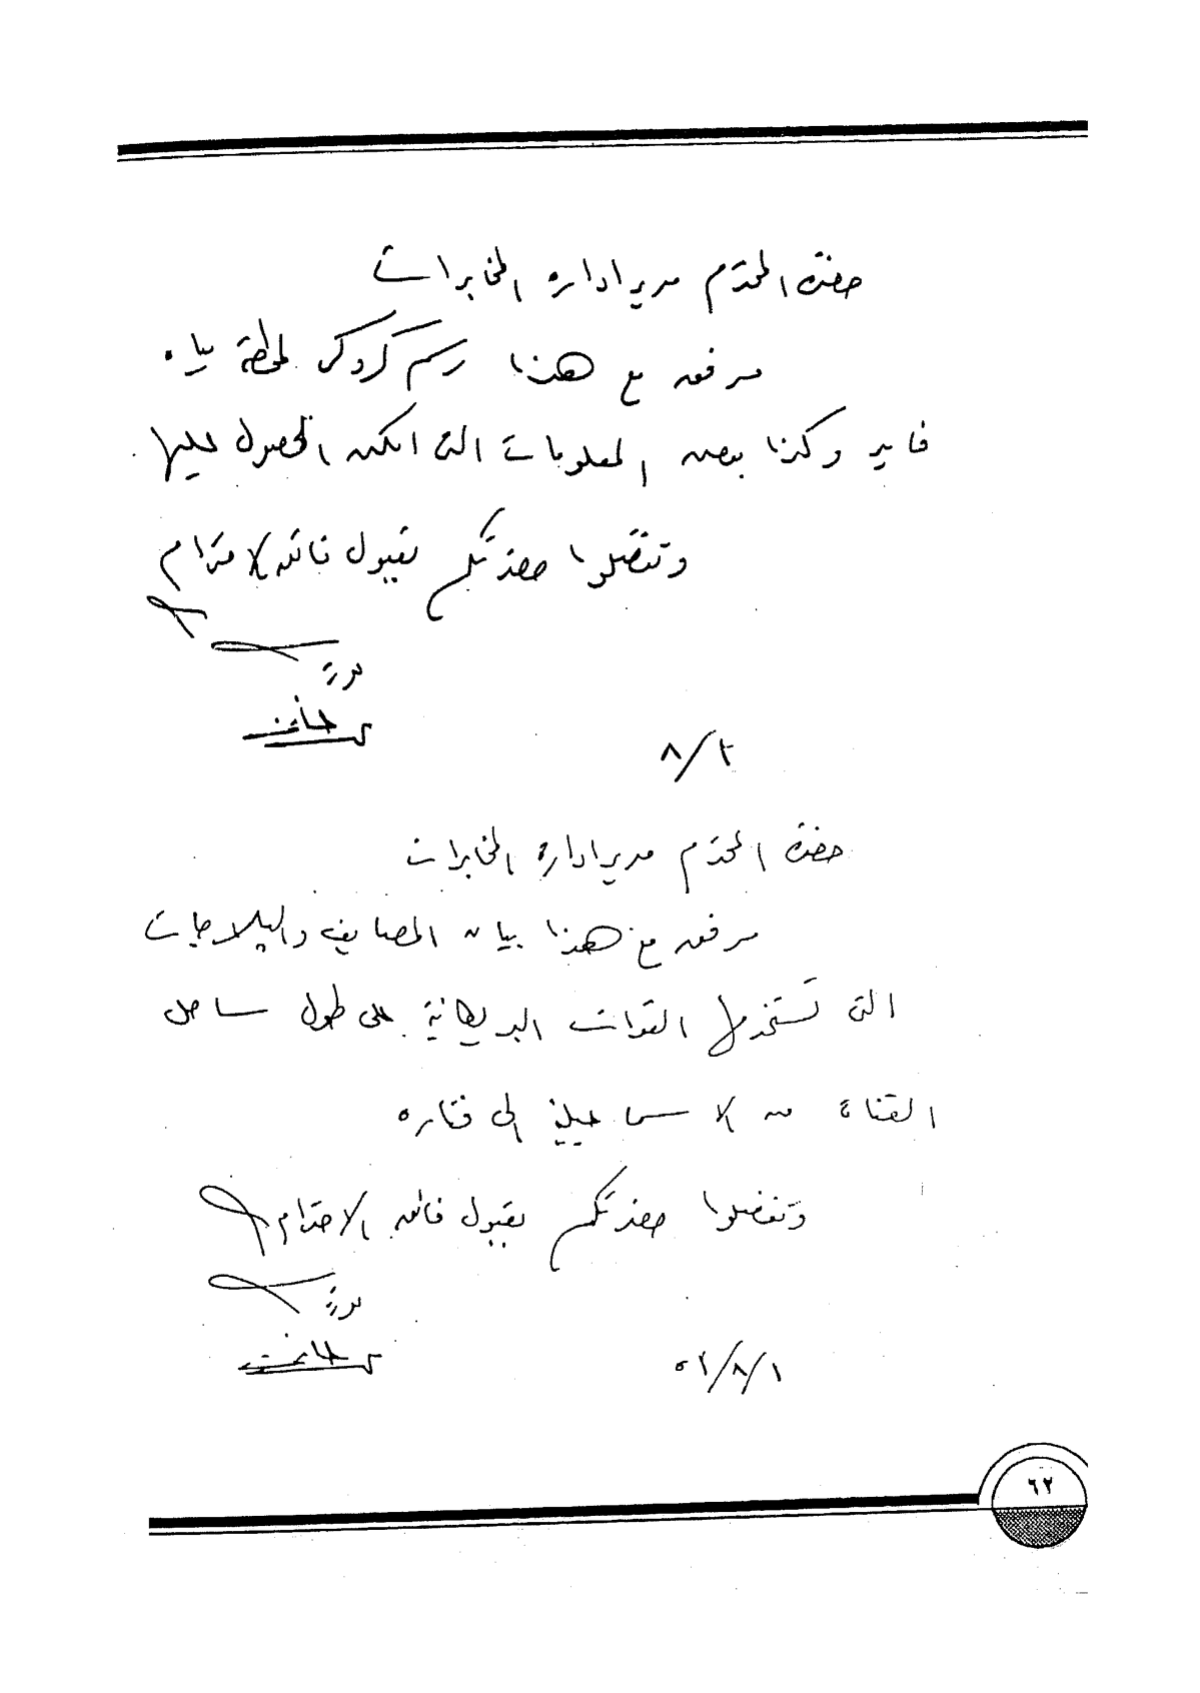 حضرة المحترم مدير اداره المخابرات
مرفق مع هذا رسم كروكى لمحطة مياه
فايد وكذا بعض المعلومات التى امكن الحصول عليها
وتفضلوا حضرتكم بقبول فائق الاحترام
٨/٢
حضرة المحترم مدير اداره المخابرات
مرفق مع هذا بيان المصايف والبلاجات
التى تستخدمها القوات البريطانية على طول ساحل
القناة من الاسماعيلية الى فناره
وتفضلوا حضرتكم بقبول فائق الاحترام
٥٢/٨/١
٦٢